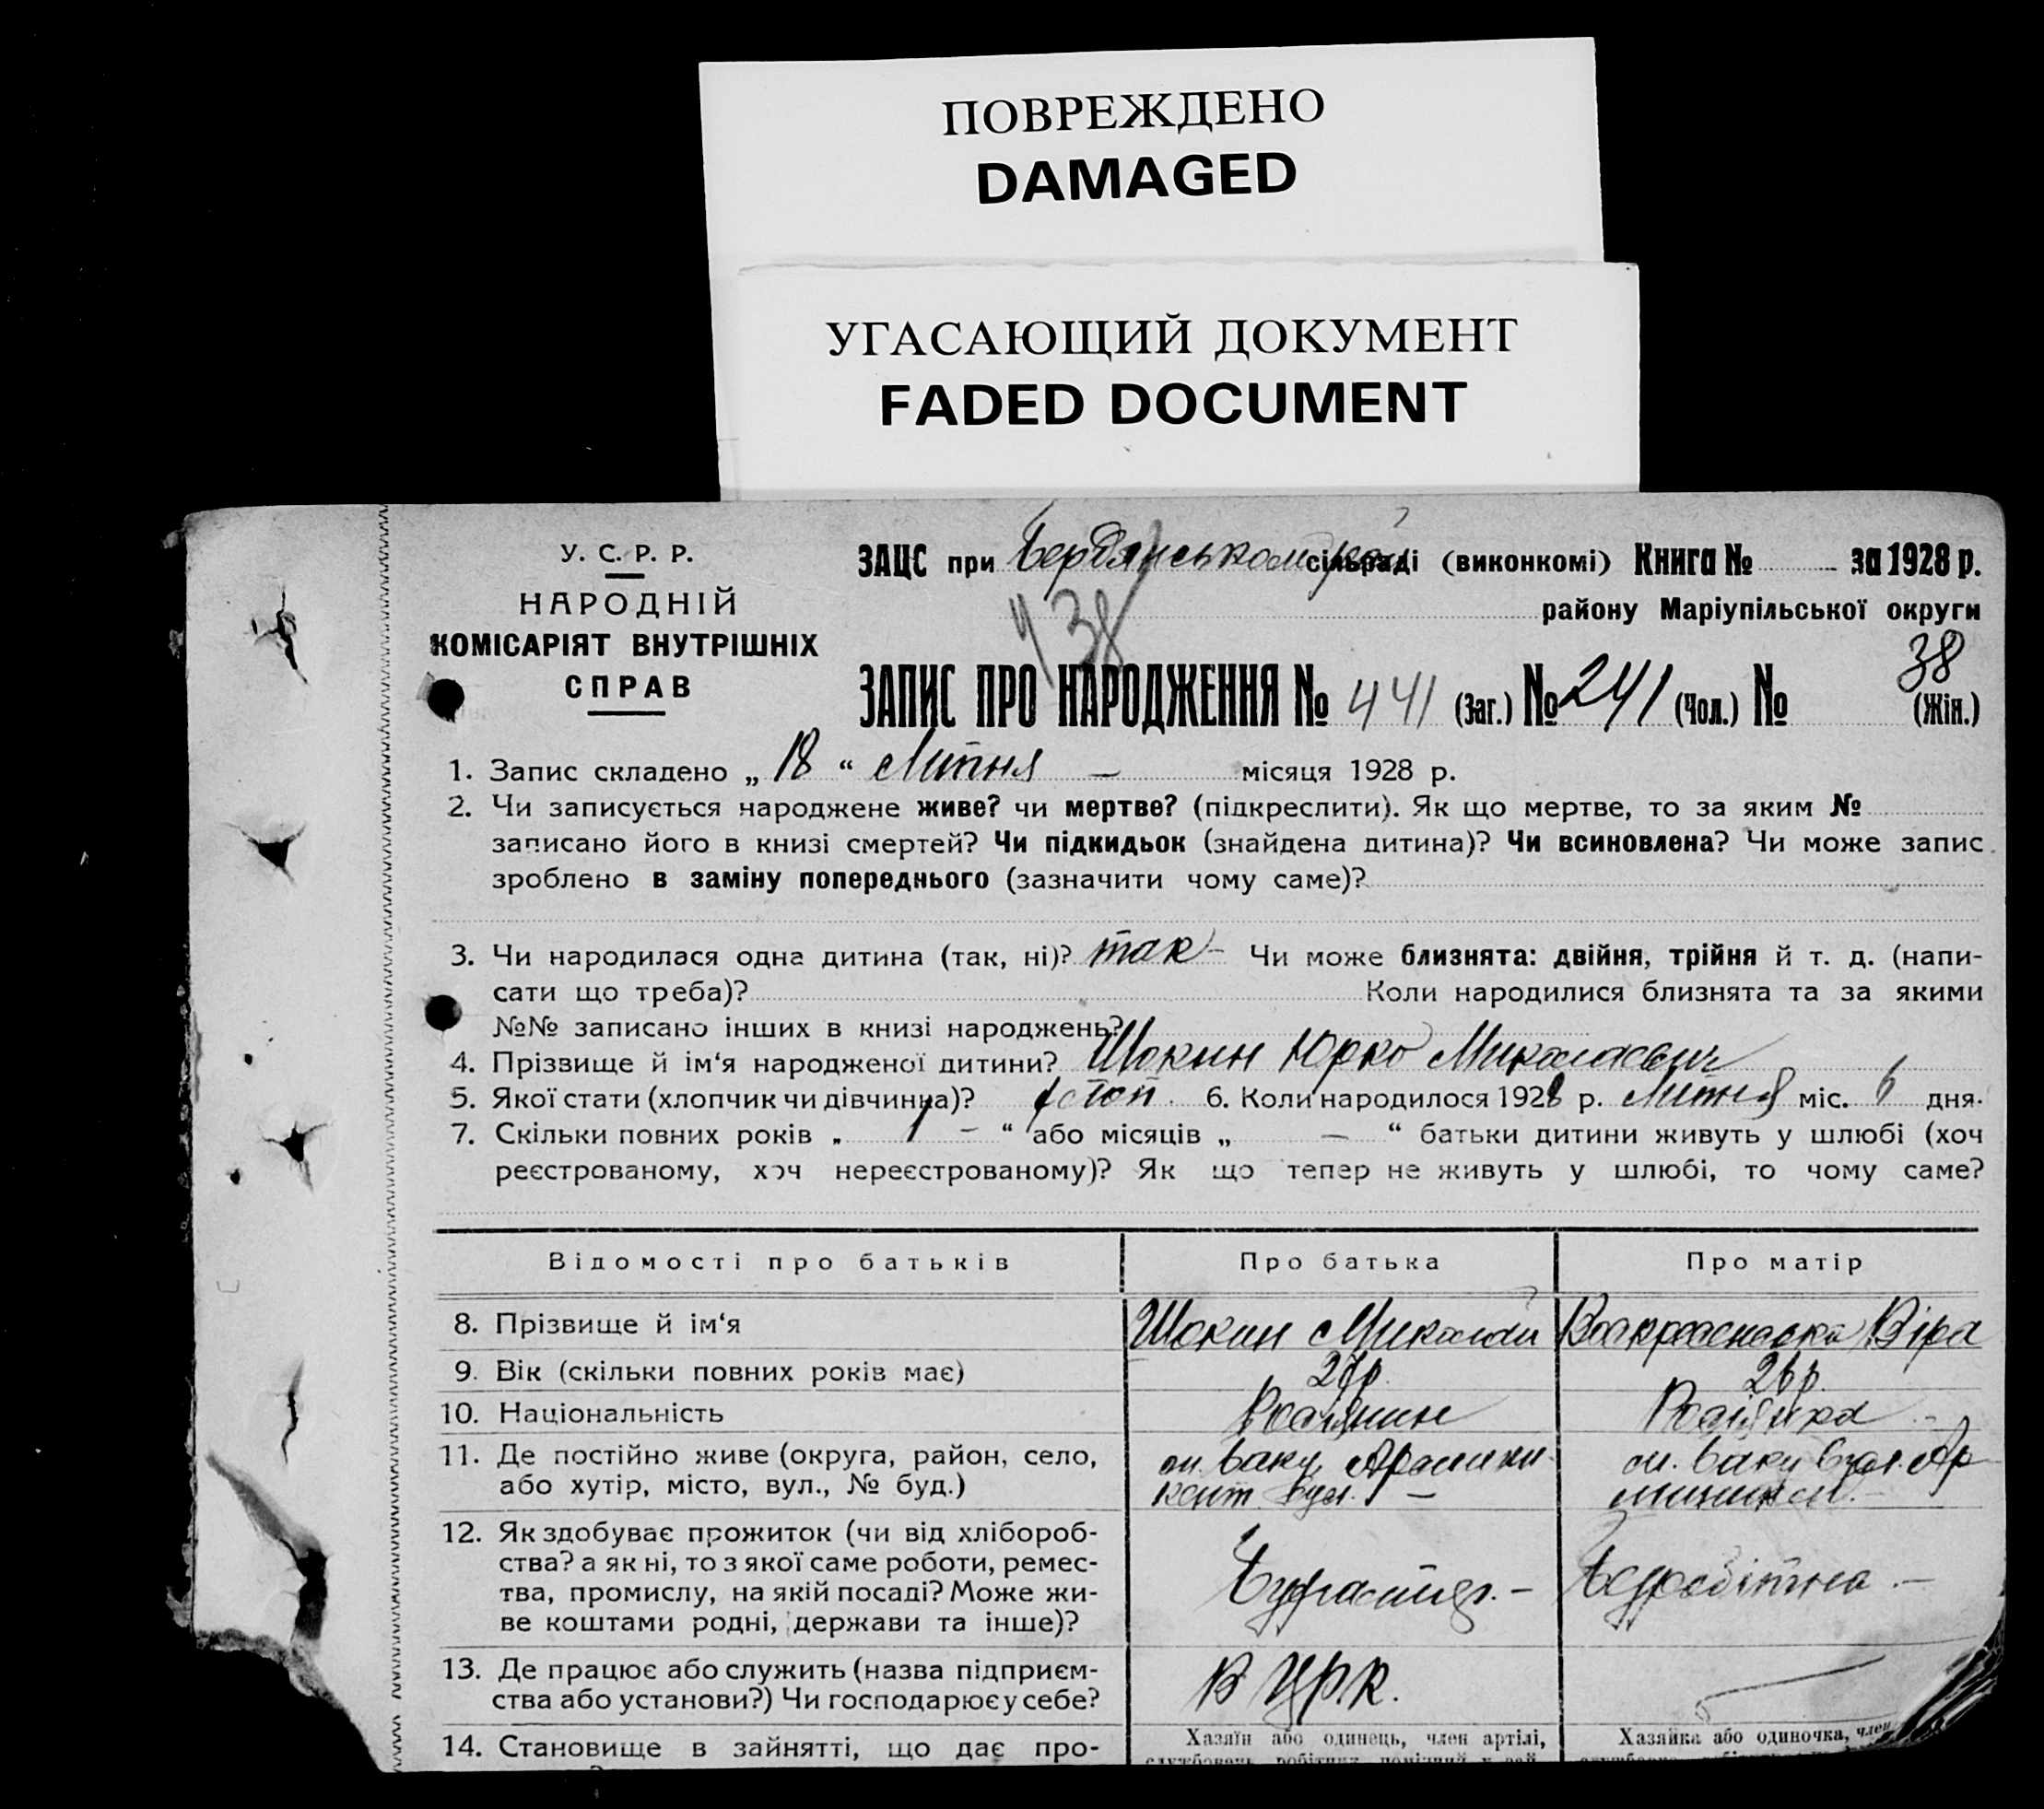 ПОВРЕЖДЕНО
DAMAGED
УГАСАЮЩИЙ ДОКУМЕНТ
FADED DOCUMENT
У. С. Р. Р.
НАРОДНІЙ
КОМІСАРІЯТ ВНУТРІШНІХ
СПРАВ
ЗАЦС при сільраді (виконкомі) Книга № за 1928 р.
району Маріупільської округи
438
38
ЗАПИС ПРО НАРОДЖЕННЯ № 441 (Заг.) № 241 (Чол.) № (Жін.)
1. Запис складено „ 18 “ Липня — місяця 1928 р.
2. Чи записується народжене живе? чи мертве? (підкреслити). Як що мертве, то за яким №
записано його в книзі смертей? Чи підкидьок (знайдена дитина)? Чи всиновлена? Чи може запис
зроблено в заміну попереднього (зазначити чому саме)?
3. Чи народилася одна дитина (так, ні)? так - Чи може близнята: двійня, трійня й т. д. (напи-
сати що треба)? Коли народилися близнята та за якими
№№ записано інших в книзі народжень?
4. Прізвище й ім‘я народженої дитини? Шокин Юрко Миколаевич
5. Якої стати (хлопчик чи дівчинна)? 6. Коли народилось 1928 р. Липня міс. 6 дня.
7. Скільки повних років „ 1 – “ або місяців „ — “ батьки дитини живуть у шлюбі (хоч
реєстрованому, хоч нереєстрованому)? Як що тепер не живуть у шлюбі, то чому саме?
Відомості про батьків Про батька Про матір
8. Прізвище й ім‘я Шокин Миколай Воскресенська Віра
9. Вік (скільки повних років має) 27р. 26р.
10. Національність Росіянин Росіянка -
11. Де постійно живе (округа, район, село, м. Баку м. Баку
або хутір, місто, вул., № буд.) вул. —
12. Як здобуває прожиток (чи від хлібороб-
ства? а як ні, то з якої саме роботи, ремес-
тва, промислу, на якій посаді? Може жи-
ве коштами родні, держави та інше)?
13. Де працює або служить (назва підприєм- В ЦРК.
ства або установи?) Чи господарює у себе?
14. Становище в зайнятті, що дає про- Хазяїн або одинець, член артілі, Хазяйка або одиночка, член